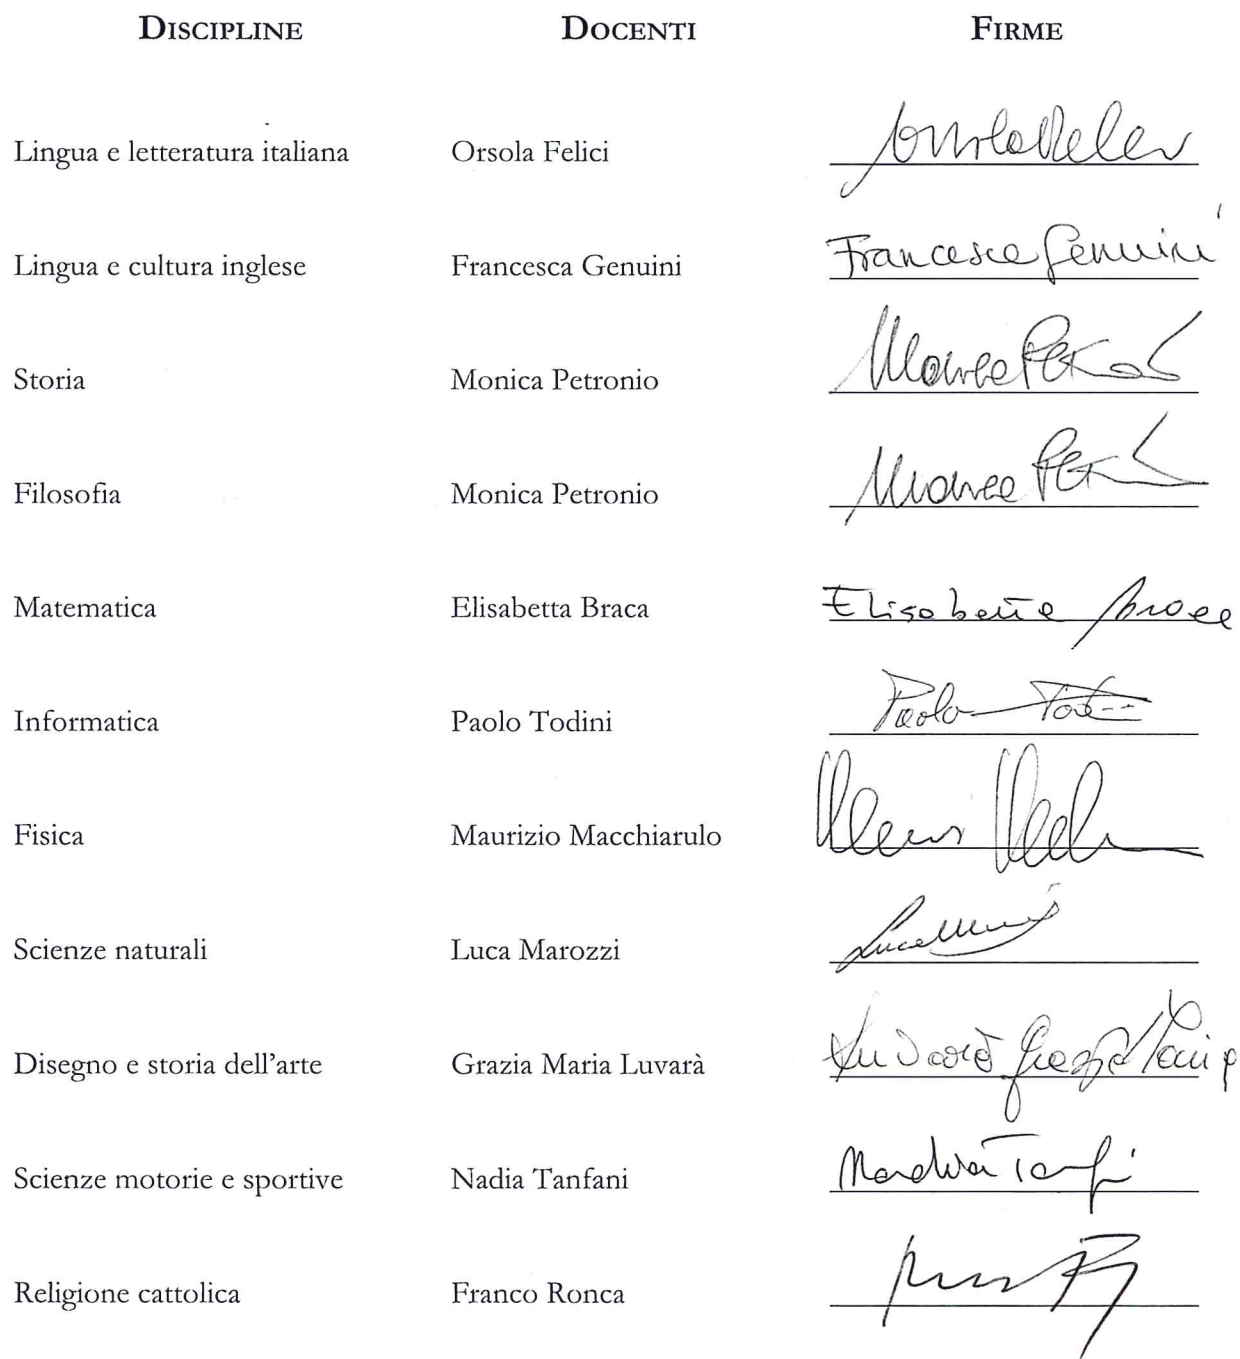 DISCIPLINE DOCENTI FIRME
Lingua e letteratura italiana Orsola Felici
Lingua e cultura inglese Francesca Genuini Francesca Genuini
Storia Monica Petronio
Filosofia Monica Petronio
Matematica Elisabetta Braca Elisabetta Braca
Informatica Paolo Todini Paolo
Fisica Maurizio Macchiarulo
Scienze naturali Luca Marozzi Luca
Disegno e storia dell'arte Grazia Maria Luvarà Luvarà Grazia Maria
Scienze motorie e sportive Nadia Tanfani Nadia
Religione cattolica Franco Ronca